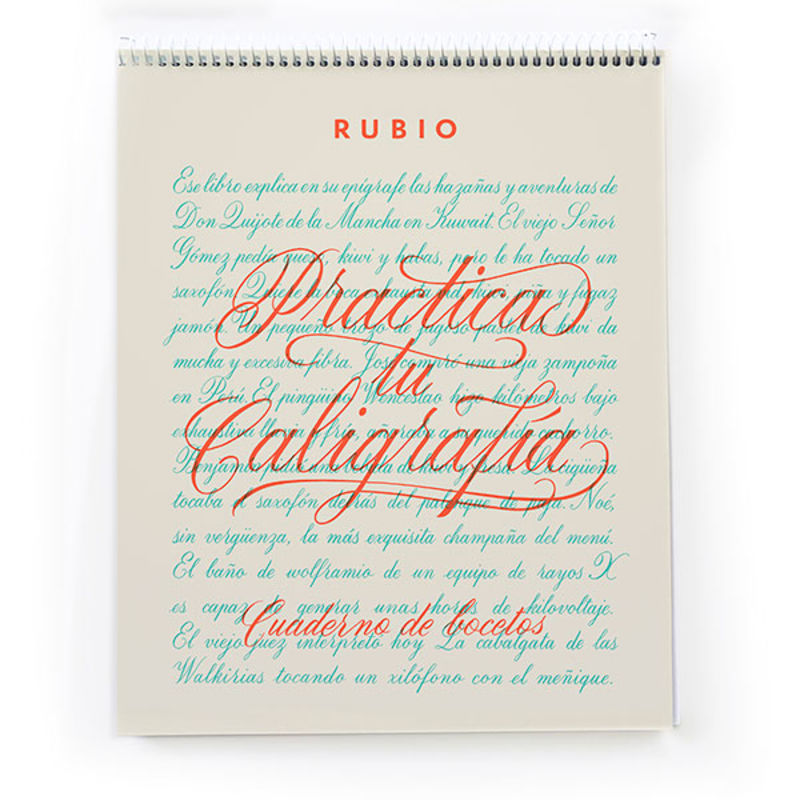 RUBIO
Ese libro explica en su epígrafe las hazañas y aventuras de
Don Quijote de la Mancha en Kuwait. El viejo Señor
Gómez pedía queso, kiwi y habas, pero le ha tocado un
saxofón. Quiere la boca exhausta vid, kiwi, piña y fugaz
Practica
jamón. Un pequeño trozo de jugoso pastel de kiwi da
mucha y excesiva fibra. José compró una vieja zampoña
tu
en Perú. El pingüino Wenceslao hizo kilómetros bajo
exhaustiva lluvia y frío, añoraba a su querido cachorro.
Caligrafía
Benjamín pidió una bebida de kiwi y fresa. La cigüeña
tocaba el saxofón detrás del palenque de paja. Noé,
sin vergüenza, la más exquisita champaña del menú.
El baño de wolframio de un equipo de rayos X
es capaz de generar unas horas de kilovoltaje.
Cuaderno de bocetos
El viejo Güez interpretó hoy La cabalgata de las
Walkirias tocando un xilófono con el meñique.